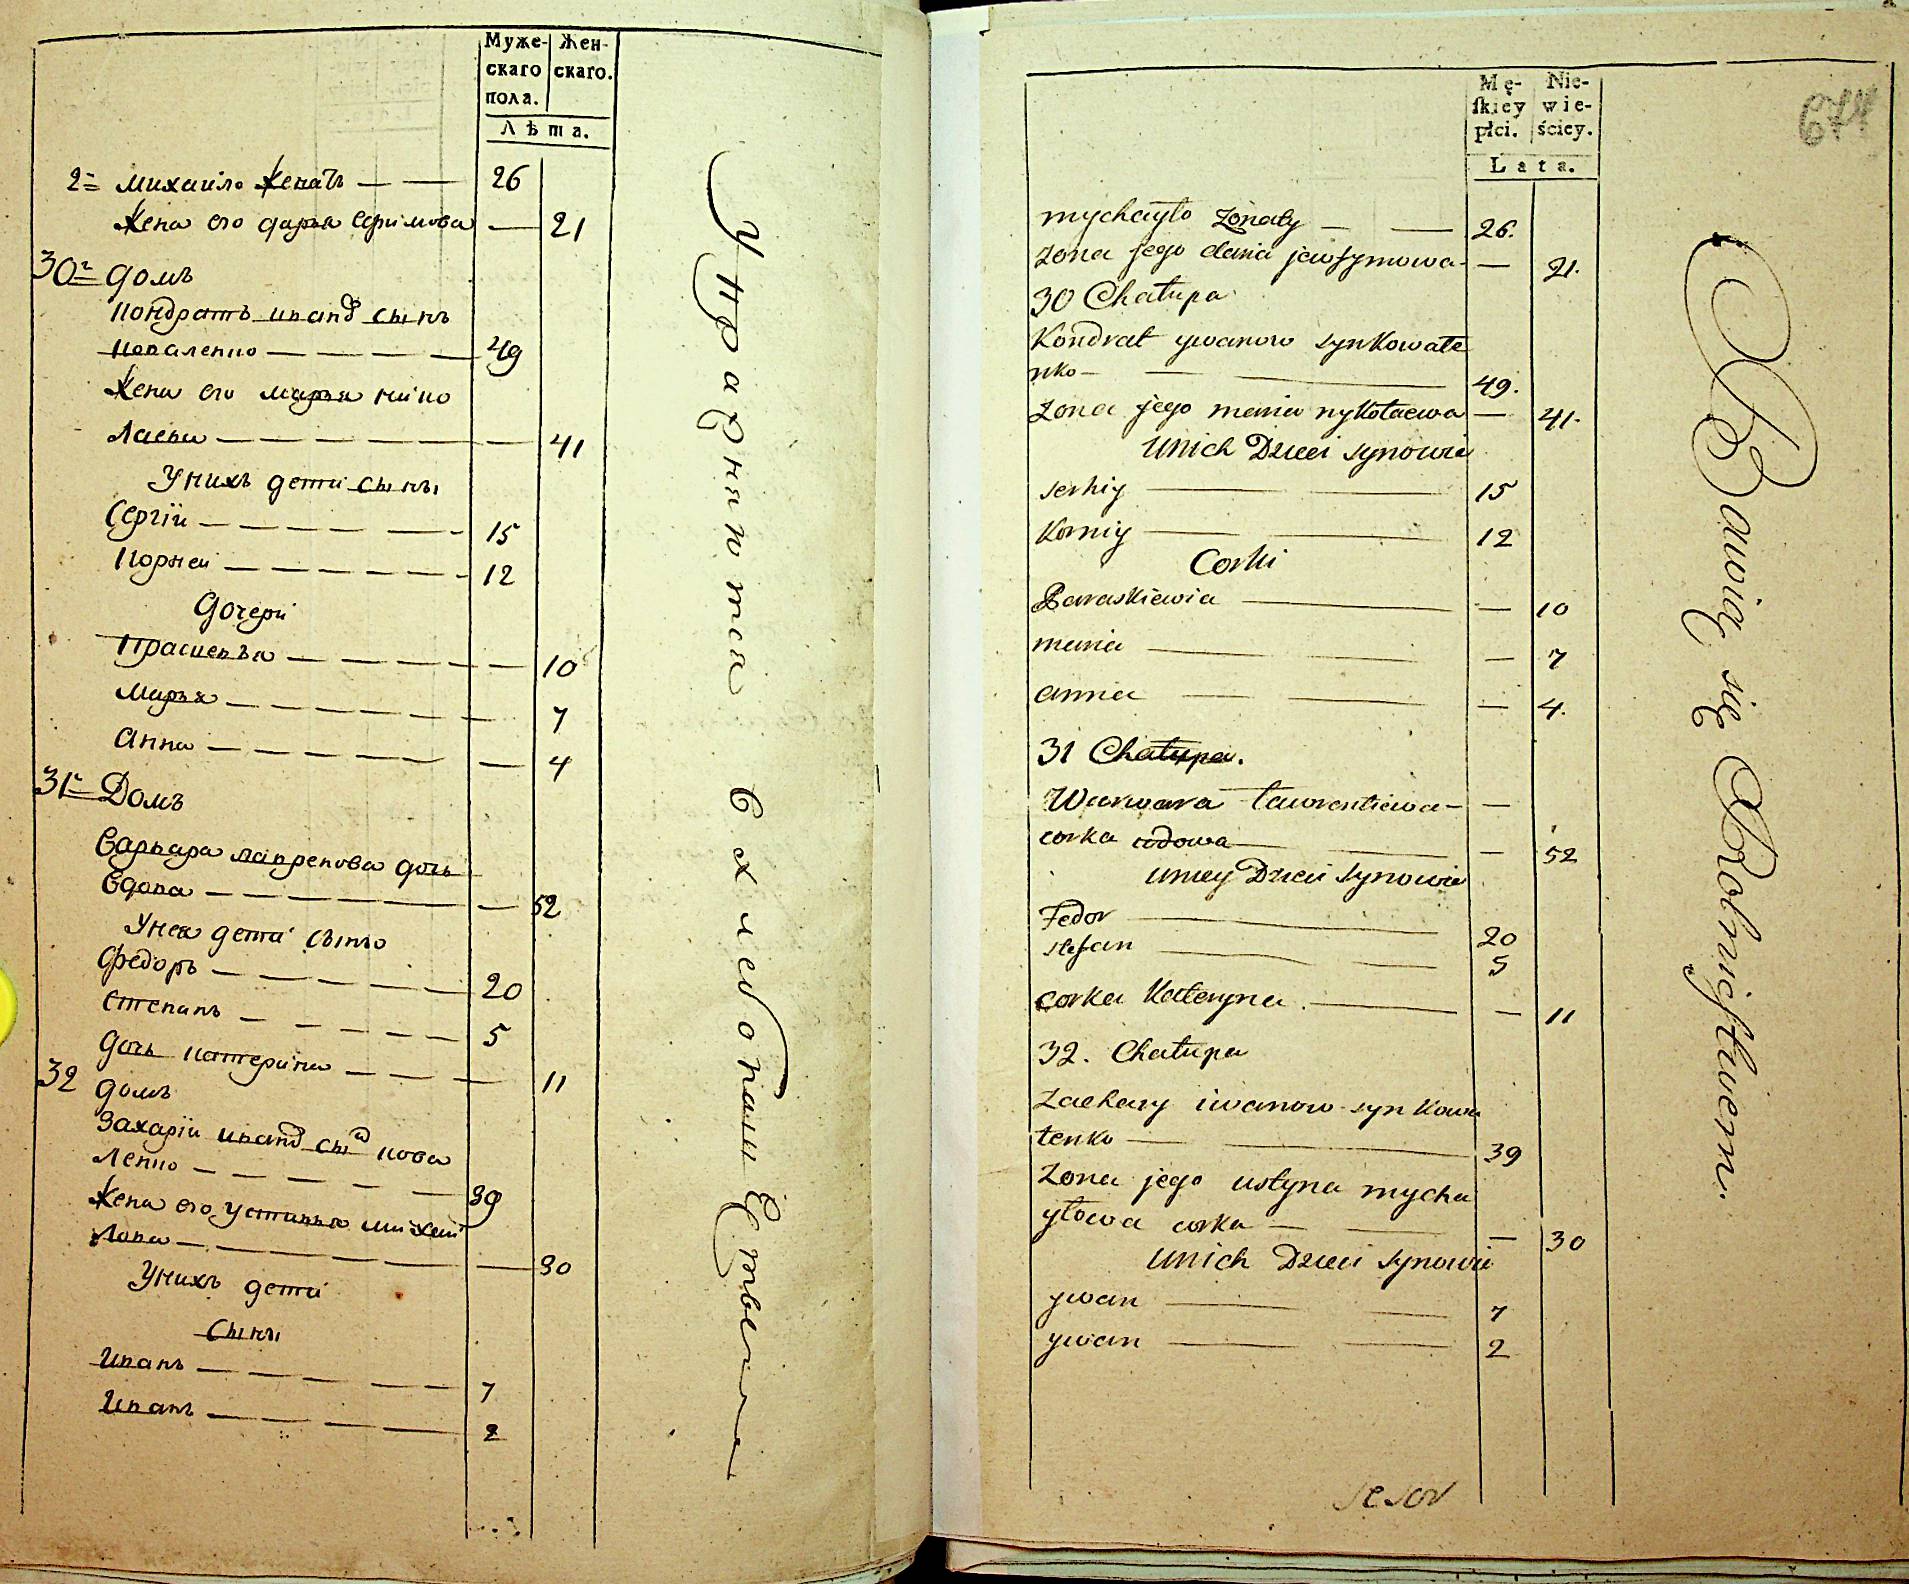 Муже- Жен-
скаго скаго.
пола.
Лѣта.
2 Михаило женатъ — — 26
Жена его дарья Ефимова — 21
30 домъ
Кондратъ иванов сынъ
Коваленко — — — — 49
Жена его марья нико
лаева — — — — — 41
Унихъ дети сыны
Сергiи — — — — — 15
Корней — — — — — — 12
дочери
Прасковья — — — — — 10
Марья — — — — — — 7
Анна — — — — — — 4
31 Домъ
Варвара лавренова дочь
Вдова — — — — — — 52
Унея дети сыны
Федоръ — — — — — 20
Степанъ — — — — — 5
дочь катерина — — — — 11
32 домъ
Захарiи иванов сын кова
ленко — — — — — 39
Жена его устинья михаи
лова — — — — — — 30
Унихъ дети
Сыны
Иванъ — — — — — 7
Иванъ — — — — — 2
Упражняются в хлебопашественно
Mę- Nie-
ſkiey wie-
płci. ściey.
Lata.
674
mychayło żonaty — — 26.
żona jego daria jewfymowa — 21.
30 Chałupa
Kondrat ywanow syn Kowale
nko — — — 49.
żona jego maria nykołaewa — 41.
Unich Dzieci synowie
serhiy — — 15
Korniy — — 12
Corki
Paraskiewia — — 10
maria — — — 7
anna — — — 4.
31 Chałupa.
Warwara Ławrentiewa — —
corka wdowa — — — 52
uniey Dzieci synowie
Fedor — 20
stefan — — 5
corka Kateryna. — — 11
32. Chałupa
Zachary iwanow syn Kowa
lenko — — 39
żona jego ustyna mycha
yłowa corka — — — 30
Unich Dzieci synowie
ywan — — 7
ywan — — 2
Bawią się Rolnictwem.